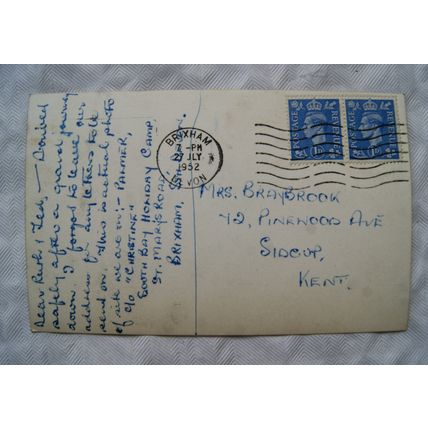 Dear Ruth & Ted, — Arrived
safely after a grand journey
down. I forgot to leave our
address if any letters to be
sent on. This is actual photo
of site we are on:- PALMER,
c/o "CHRISTINE"
SOUTH BAY HOLIDAY CAMP,
ST. MARY'S ROAD,
BRIXHAM,
BRIXHAM
7 - PM
27 JLY
1952
DEVON
POSTAGE
REVENUE
1D
POSTAGE
REVENUE
1D
MRS. BRAYBROOK
72, PINEWOOD AVE
SIDCUP,
KENT.